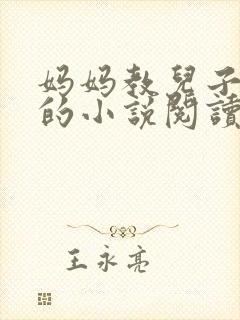 妈妈教兒子
的小說閱讀
王永亮